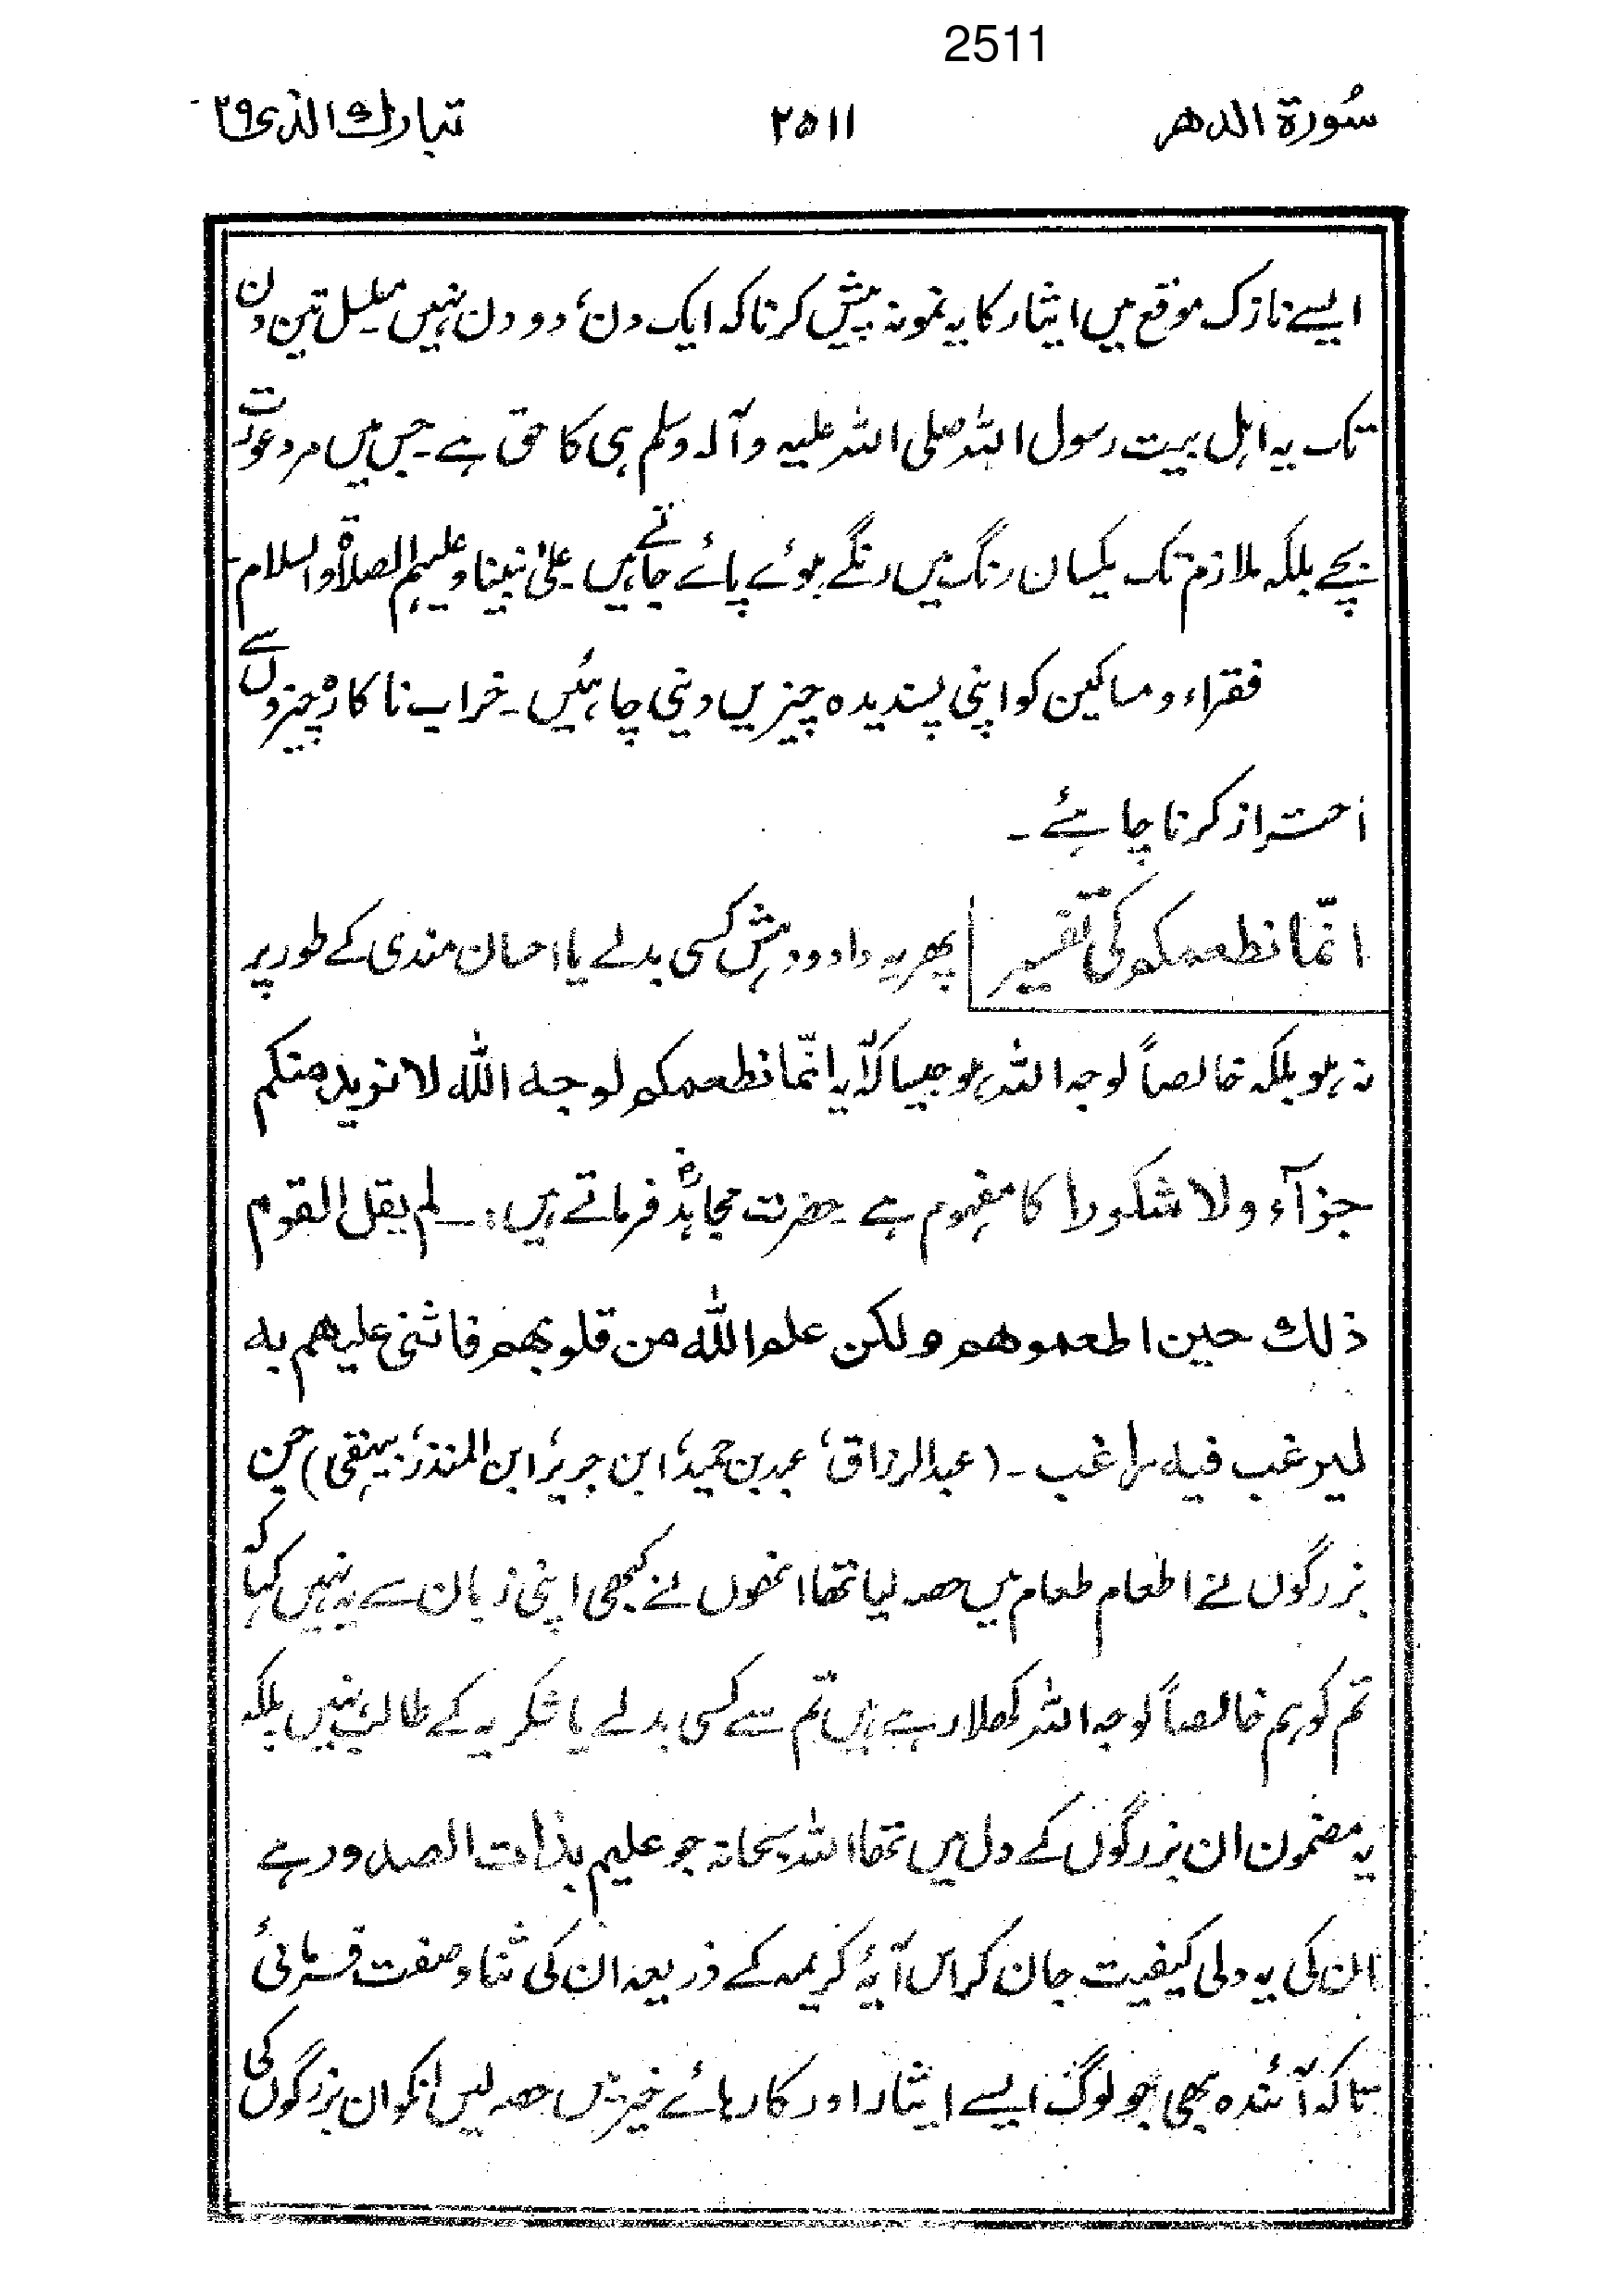 2511
سُورة الدھر ۲۵۱۱ تبارك الذی ۲۹
ایسے نازک موقع میں ایثار کا یہ نمونہ پیش کرنا کہ ایک دن، دو دن نہیں مسلسل تین دن
تک یہ اہل بیت رسول اللہ صلی اللہ علیہ وآلہ وسلم ہی کا حق ہے۔ جس میں مرد عورت
بچے بلکہ ملازم تک یکساں رنگ میں رنگے ہوئے پائے جاتے ہیں۔ علیٰ نبینا وعلیہم الصلاۃ والسلام۔
فقراء و مساکین کو اپنی پسندیدہ چیزیں دینی چاہئیں۔ خراب ناکارہ چیزوں سے
احتراز کرنا چاہئے۔
انّما نطعمکم کی تفسیر پھر یہ داد و دہش کسی بدلے یا احسان مندی کے طور پر
نہ ہو بلکہ خالصاً لوجہ اللہ ہو جیسا کہ آیہ انّما نطعمکم لوجہ اللّٰہ لا نرید منکم
جزآء ولا شکورا کا مفہوم ہے۔ حضرت مجاہدؒ فرماتے ہیں:۔ لم یقل القوم
ذلك حین اطعموھم ولکن علم اللّٰہ من قلوبھم فاثنی علیھم بہ
لیرغب فیہ راغب۔ (عبدالرزاق، عبد بن حمید، ابن جریر، ابن المنذر، بیہقی) جن
بزرگوں نے اطعام طعام میں حصہ لیا تھا انھوں نے کبھی اپنی زبان سے یہ نہیں کہا کہ
تم کو ہم خالصاً لوجہ اللہ کھلا رہے ہیں تم سے کسی بدلے یا شکریہ کے طالب نہیں بلکہ
یہ مضمون ان بزرگوں کے دل میں تھا اللہ سبحانہ جو علیم بذات الصدور ہے
ان کی یہ دلی کیفیت جان کر اس آیۂ کریمہ کے ذریعہ ان کی ثنا و صفت فرمائی
تاکہ آئندہ بھی جو لوگ ایسے ایثار اور کارہائے خیر میں حصہ لیں انکو ان بزرگوں کی